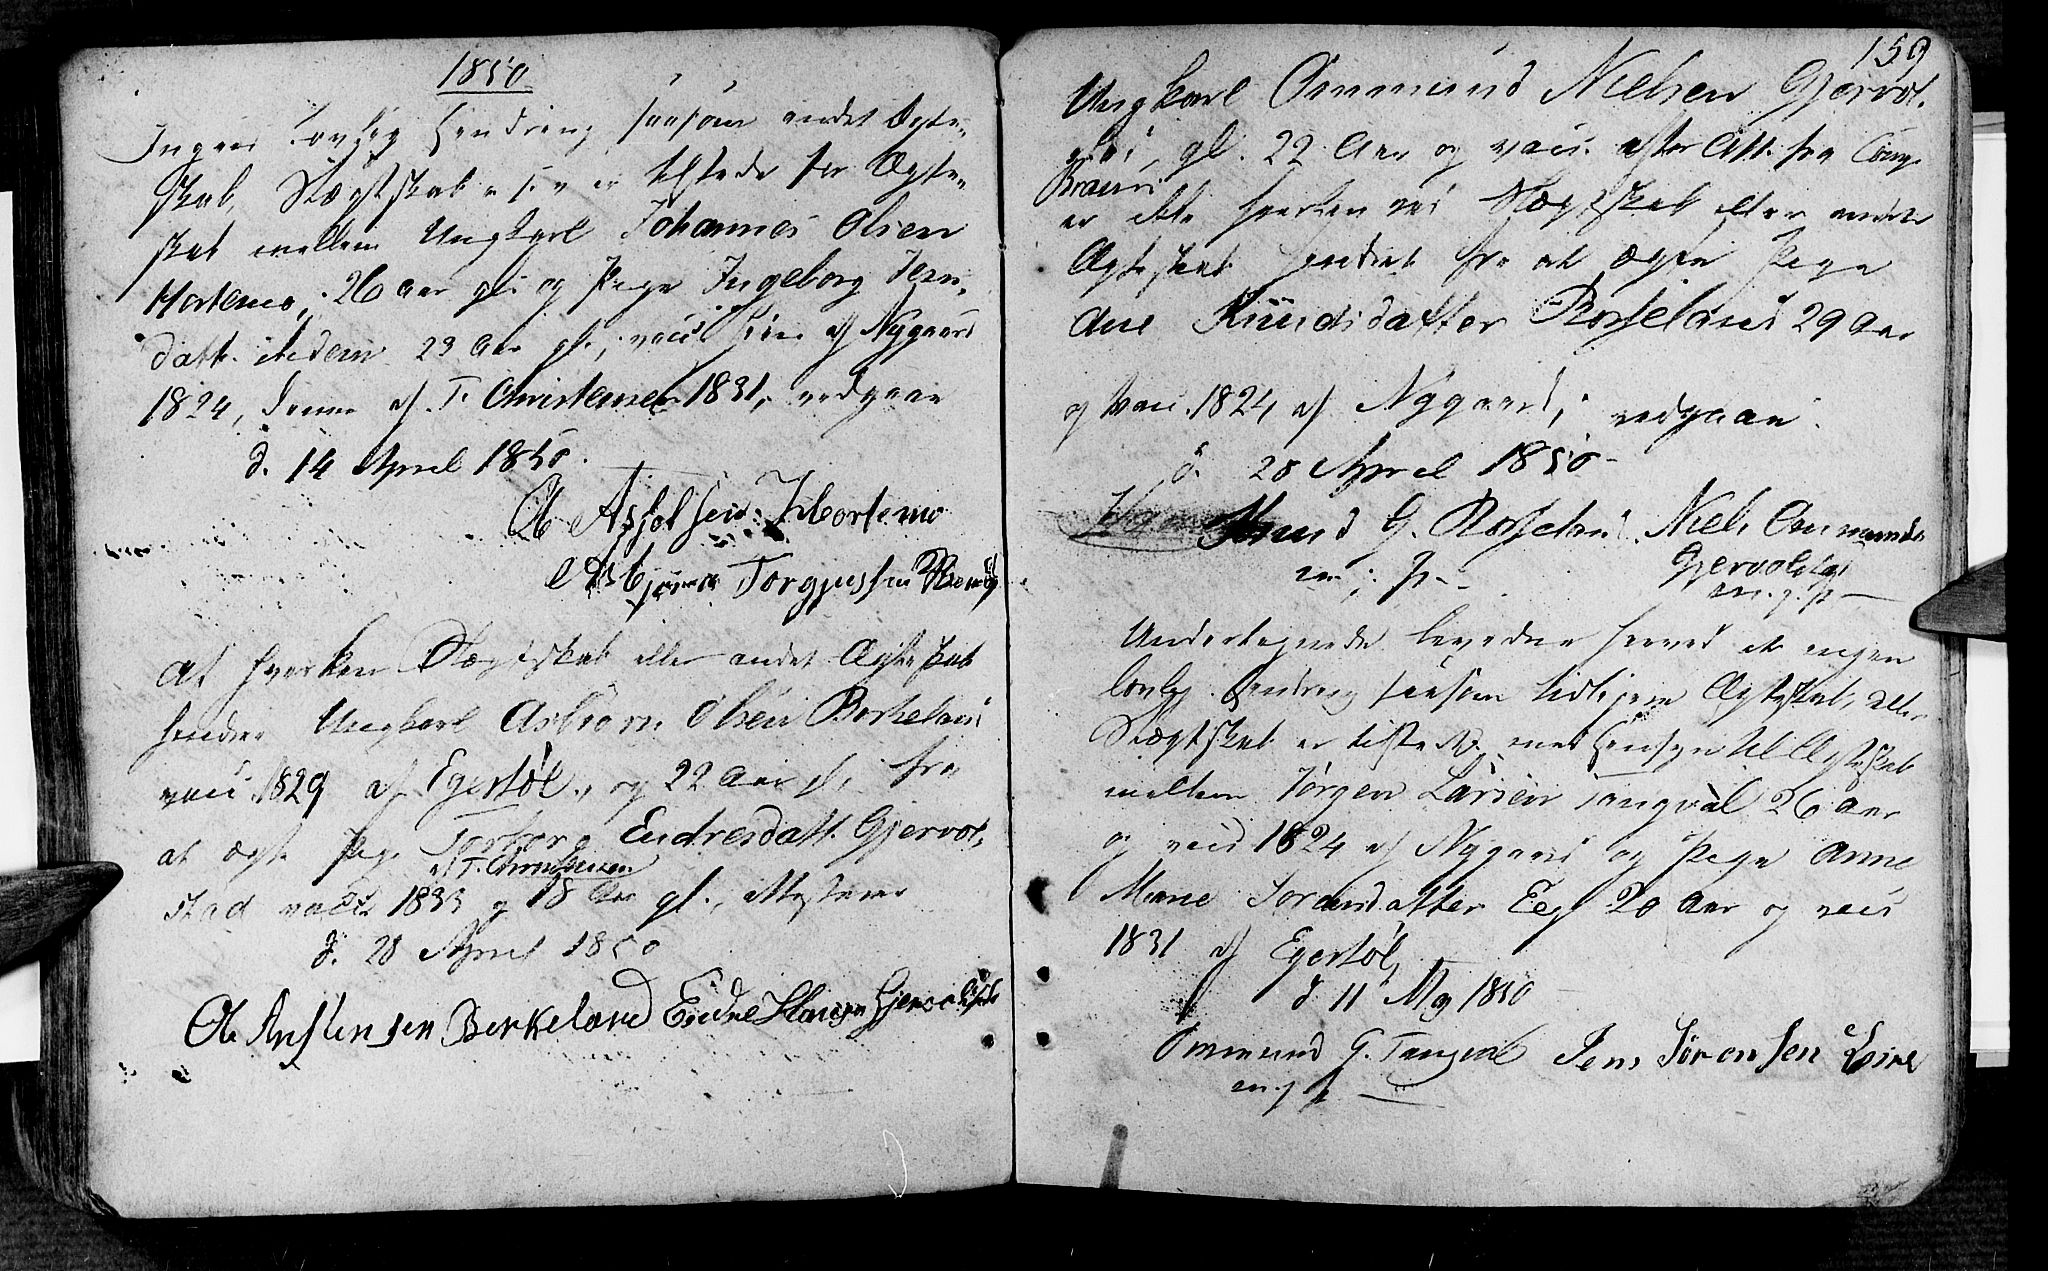 1850
Ingen Lovlig Hindring saasom andet Ægte-
skab, Slægtskab er tilstede for Ægte-
skab mellem Ungkarl Johannes Olsen
Hortemo, 26 Aar gl. og Pige Ingeborg Jens
datt. ibidem 29 Aar gl., vacc. af Nygaard
1824, denne af T. Christensen 1831, vedgaae
d. 14 April 1850.
Ol Asjolsen Hortemo
Asbjørn Torgjussen
At hverken Slægtskab eller andet Ægteskab
hindrer Ungkarl Asbiørn Olsen Birkeland
vacc. 1829 af Egertøl, og 22 Aar gl. fra
at ægte Pige Torborg Endresdatt. Gjervol-
af T. Christensen
stad vacc. 1833 og 18 Aar gl., attesterer
d. 28 April 1850
Ol Anstensen Berkeland Endre Gjervoldstad
159
Ungkarl Ommund Nielsen Gjervol-
stad, gl. 22 Aar og vacc. efter Att. fra
Braun
er ikke hverken ved Slægtskab eller andet
Ægteskab hindret fra at ægte Pige
Ane Knudsdatter Rosseland 29 Aar
og vacc. 1824 af Nygaard, vedgaae
d. 28 April 1850
Knud G. Rosseland Niels Ommunds
Gjervoldstad
m. p. m. p.
Undertegnede bevidne herved at ingen
lovlig Hindring saasom tidligere Ægteskab, eller
Slægtskab er tilstede med Hensyn til Ægteskab
mellem Jørgen Larsen Tangvål 26 Aar
og vacc 1824 af Nygaard og Pige Anne
Marie Sørensdatter Eeg 20 Aar og vacc
1831 af Egertøl,
d 11 May 1850
Ommund G. Jens Sørensen
m. p.